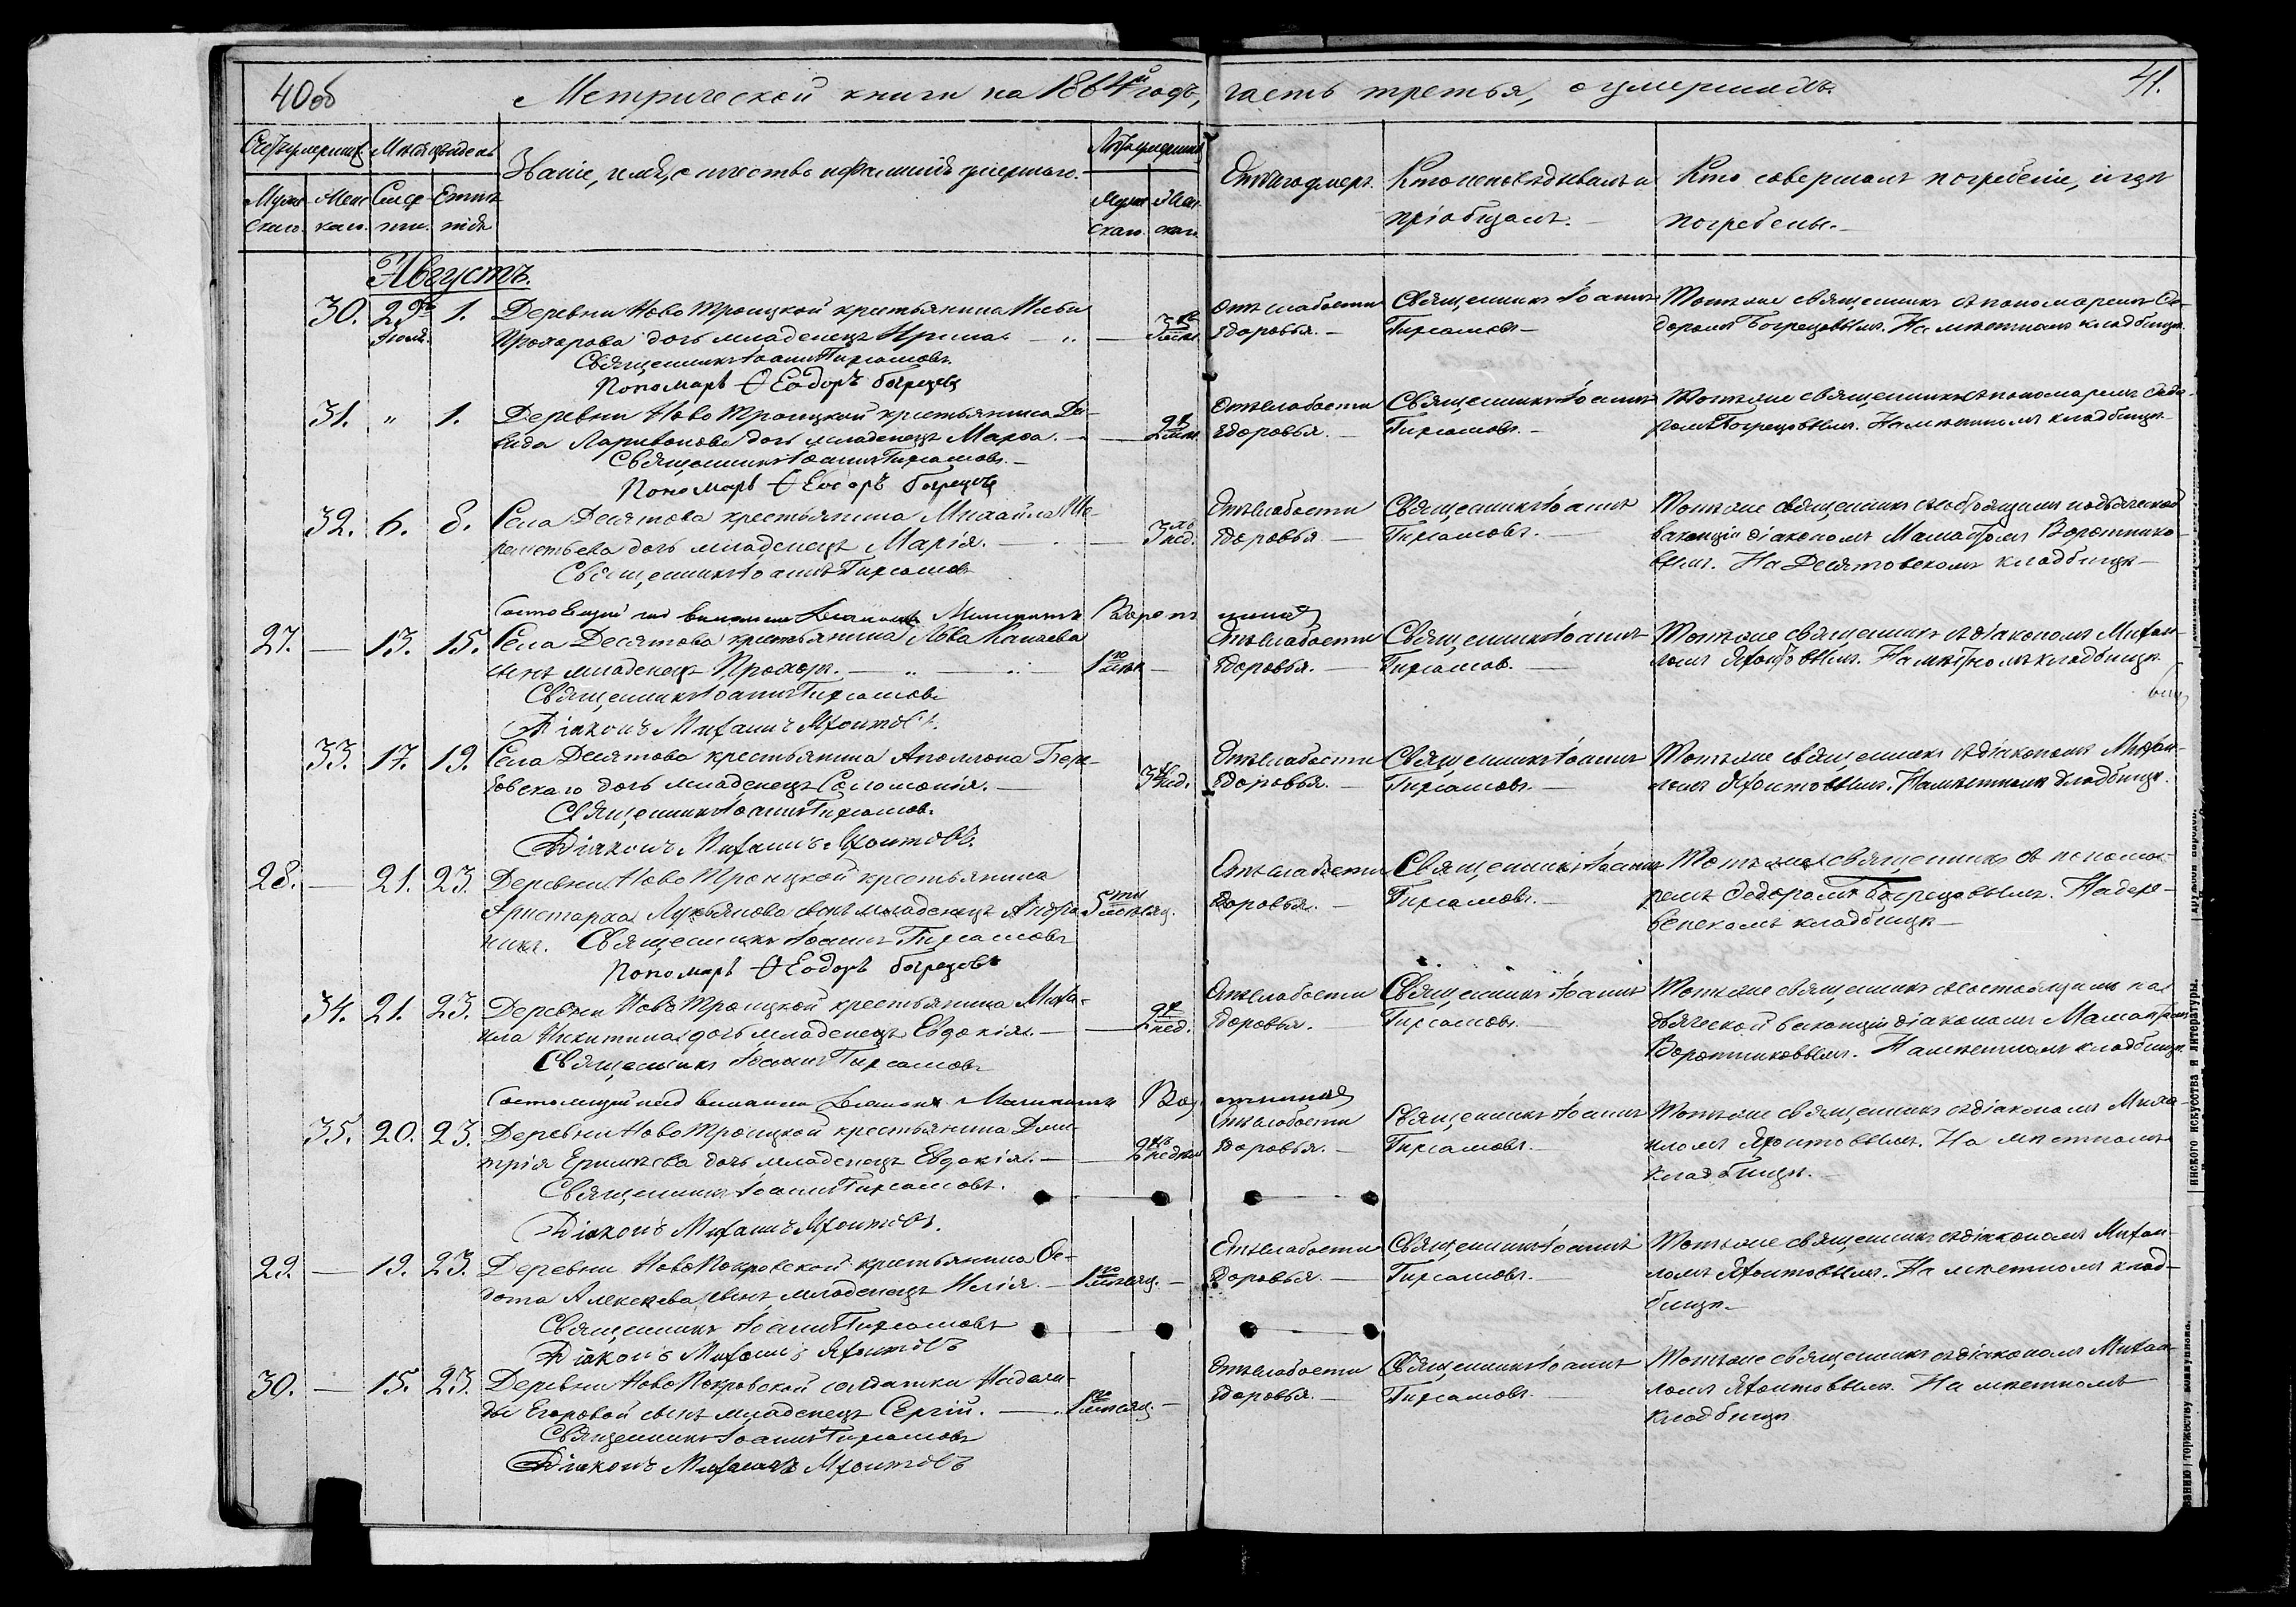 40об
Метрической книги на 1864й годъ, часть третья, о умершихъ.
41.
Счетъ умершихъ. Мѣсяцъ и день
Званіе, имя, отчество и фамилія умершаго.
Лѣта умершаго
Отъ чего умеръ.
Кто исповѣдывалъ и
пріобщалъ.
Кто совершалъ погребеніе, и гдѣ
погребены.
Муже
скаго.
Жен
скаго.
Смер
ти.
Погре
Муже
скаго.
Жен
скаго.
Августъ.
30. 29 Іюля. 1. Деревни Ново Троицкой крестьянина
Прохорова дочь младенецъ Ирина.
Священникъ Іоаннъ Тирсановъ.
Пономарь Ѳеодоръ
Отъ слабости
здоровья.
Священникъ Іоаннъ
Тирсановъ
Тотъ же священникъ съ пономаремъ Ѳе-
доромъ. На мѣстномъ кладбищѣ.
31. " 1. Деревни Ново Троицкой крестьянина Да-
вида Ларивонова дочь младенецъ Марѳа.
Священникъ Іоаннъ Тирсановъ.
Пономарь Ѳеодоръ
2 мѣс.
Отъ слабости
здоровья.
Священникъ Іоаннъ
Тирсановъ.
Тотъ же священникъ съ пономаремъ Ѳедо-
ромъ. На мѣстномъ кладбищѣ
32. 6. 8. Села Десятова крестьянина Михайла Ше-
реметьева дочь младенецъ Марія.
Священникъ Іоаннъ Тирсановъ
3хъ нед.
Отъ слабости
здоровья
Священникъ Іоаннъ
Тирсановъ.
Тотъ же священникъ съ
вакансіи діакономъ Воротнико-
вымъ. На Десятовскомъ кладбищѣ
27. — 13. 15. Села Десятова крестьянина Льва
сынъ младенецъ Прохоръ.
Священникъ Іоаннъ Тирсановъ
Діаконъ Михаилъ Яхонтовъ.
1го мѣс
Отъ слабости
здоровья.
Священникъ Іоаннъ
Тирсановъ.
Тотъ же священникъ съ діакономъ Михаи-
ломъ Яхонтовымъ. На мѣстномъ кладбищѣ
33. 17. 19. Села Десятова крестьянина Аполлона
дочь младенецъ Соломонія.
Священникъ Іоаннъ Тирсановъ.
Діаконъ Михаилъ Яхонтовъ.
3 нед.
Отъ слабости
здоровья.
Священникъ Іоаннъ
Тирсановъ.
Тотъ же священникъ съ діакономъ Михаи-
ломъ Яхонтовымъ. На мѣстномъ кладбищѣ.
28. — 21. 23. Деревни Ново Троицкой крестьянина
Аристарха Лукьянова сынъ младенецъ Андро-
никъ. Священникъ Іоаннъ Тирсановъ
Пономарь Ѳеодоръ
5ти мѣсяц.
Отъ слабости
здоровья.
Священникъ Іоаннъ
Тирсановъ.
Тотъ же священникъ съ понома-
ремъ Ѳедоромъ. На дере-
венскомъ кладбищѣ
34. 21. 23. Деревни Ново Троицкой крестьянина Миха-
ила Никитина дочь младенецъ Евдокія.
Священникъ Іоаннъ Тирсановъ
2 нед.
Отъ слабости
здоровья.
Священникъ Іоаннъ
Тирсановъ.
Тотъ же священникъ съ состоящимъ на
вакансіи діакономъ
Воротниковымъ. На мѣстномъ кладбищѣ.
35. 20. 23. Деревни Ново Троицкой крестьянина Дми-
трія Еримѣева дочь младенецъ Евдокія.
Священникъ Іоаннъ Тирсановъ.
Діаконъ Михаилъ Яхонтовъ.
2хъ недѣль
Отъ слабости
здоровья.
Священникъ Іоаннъ
Тирсановъ.
Тотъ же священникъ съ діакономъ Миха-
иломъ Яхонтовымъ. На мѣстномъ
кладбищѣ.
29. — 19. 23. Деревни Ново Покровской крестьянина Ѳе-
дота Алексѣева сынъ младенецъ Илія.
Священникъ Іоаннъ Тирсановъ
Діаконъ Михаилъ Яхонтовъ
1го мѣсяц.
Отъ слабости
здоровья.
Священникъ Іоаннъ
Тирсановъ.
Тотъ же священникъ съ діакономъ Михаи-
ломъ Яхонтовымъ. На мѣстномъ клад-
бищѣ.
30. — 15. 23. Деревни Ново Покровской солдатки
Егоровой сынъ младенецъ Сергій.
Священникъ Іоаннъ Тирсановъ
Діаконъ Михаилъ Яхонтовъ
1го мѣсяц.
Отъ слабости
здоровья.
Священникъ Іоаннъ
Тирсановъ.
Тотъ же священникъ съ діакономъ Михаи-
ломъ Яхонтовымъ. На мѣстномъ
кладбищѣ
инского искусства и литературы.